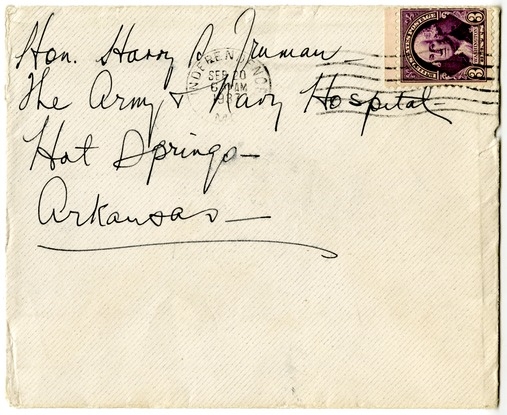 Hon. Harry S. Truman
The Army & Navy Hospital
Hot Springs
Arkansas
INDEPENDENCE
SEP 20
AM
MO.
UNITED STATES POSTAGE
3 3